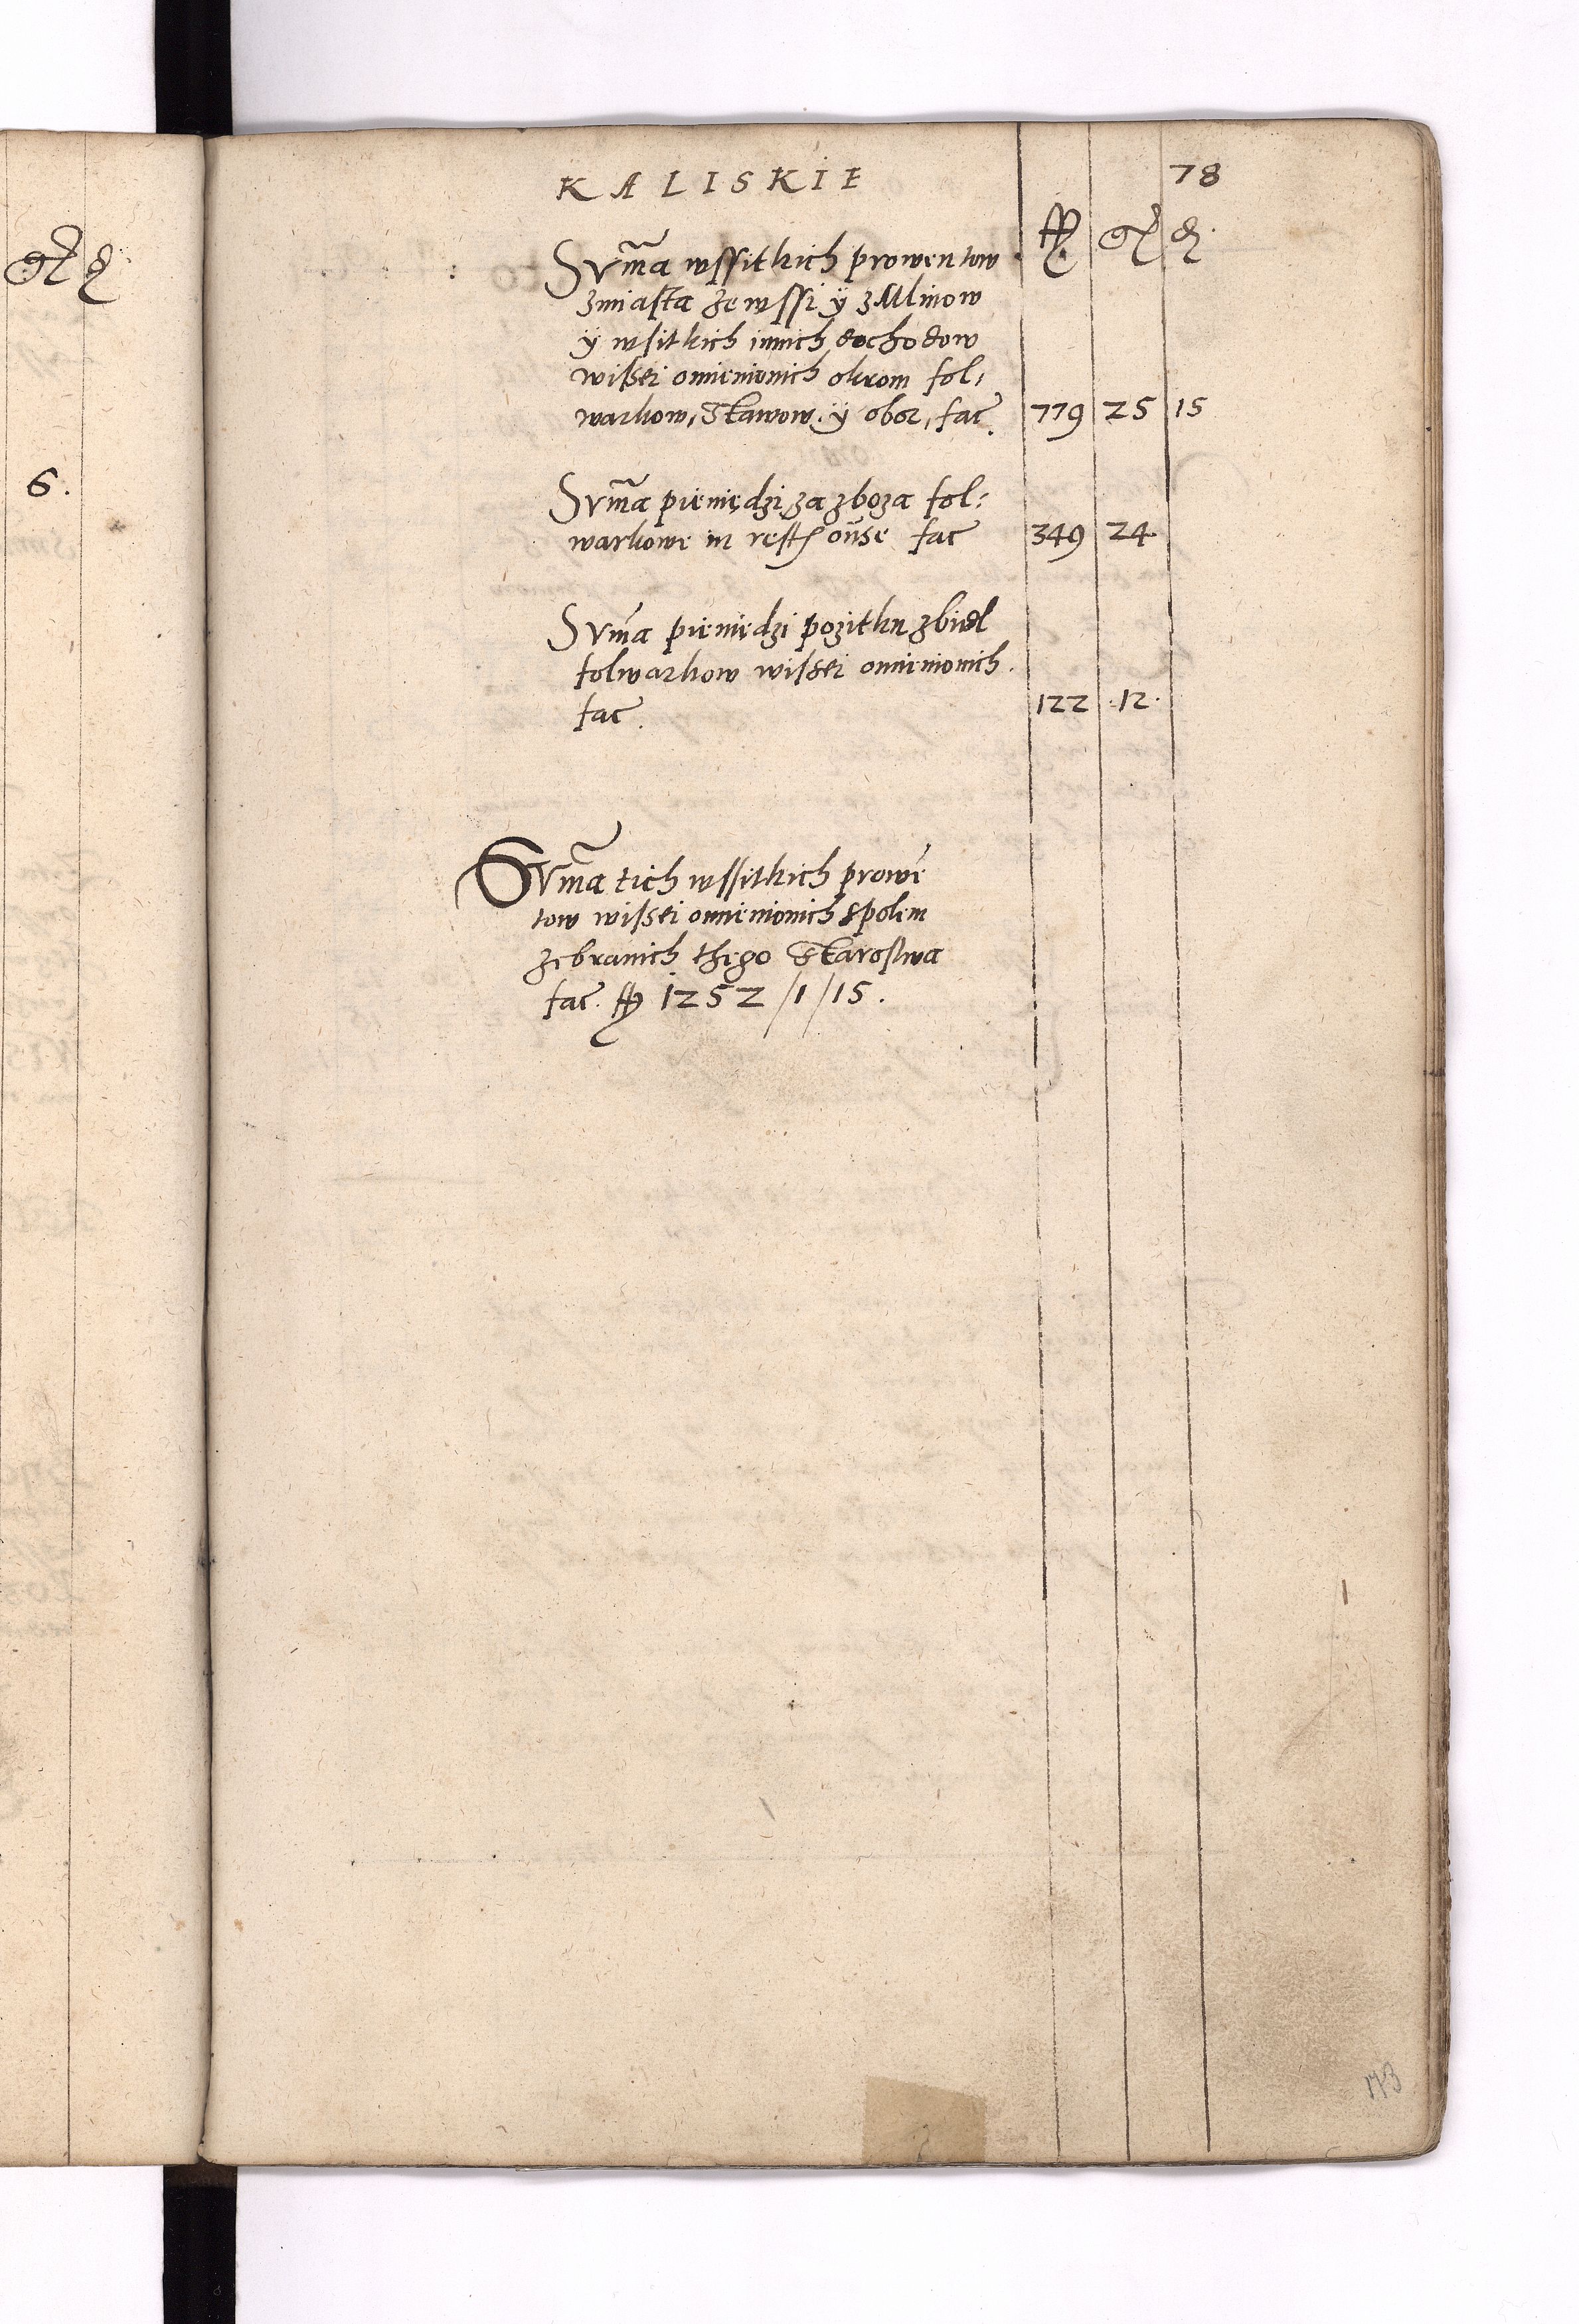 KALISKIE 78
Sum̃a wssitkich prowentow
zmiasta ze wssi ÿ z Mlinow
ÿ wsitkich innich dochodow
wissei omienionich okrom fol:
warkow, Stawow, ÿ obor, fac̃ 779 25 15
Sum̃a pieniędzi za zboza fol:
warkowe in rest 349 24
fac̃
Sum̃a pieniędzi pozitku zbidl
folwarkow wissei omienionich
fac̃. 122 12
Sum̃a tich wssitkich prowẽ
tow wissei omienionich spolem
zebranich thego Starostwa
fac̃. 1252/1/15.
6.
173